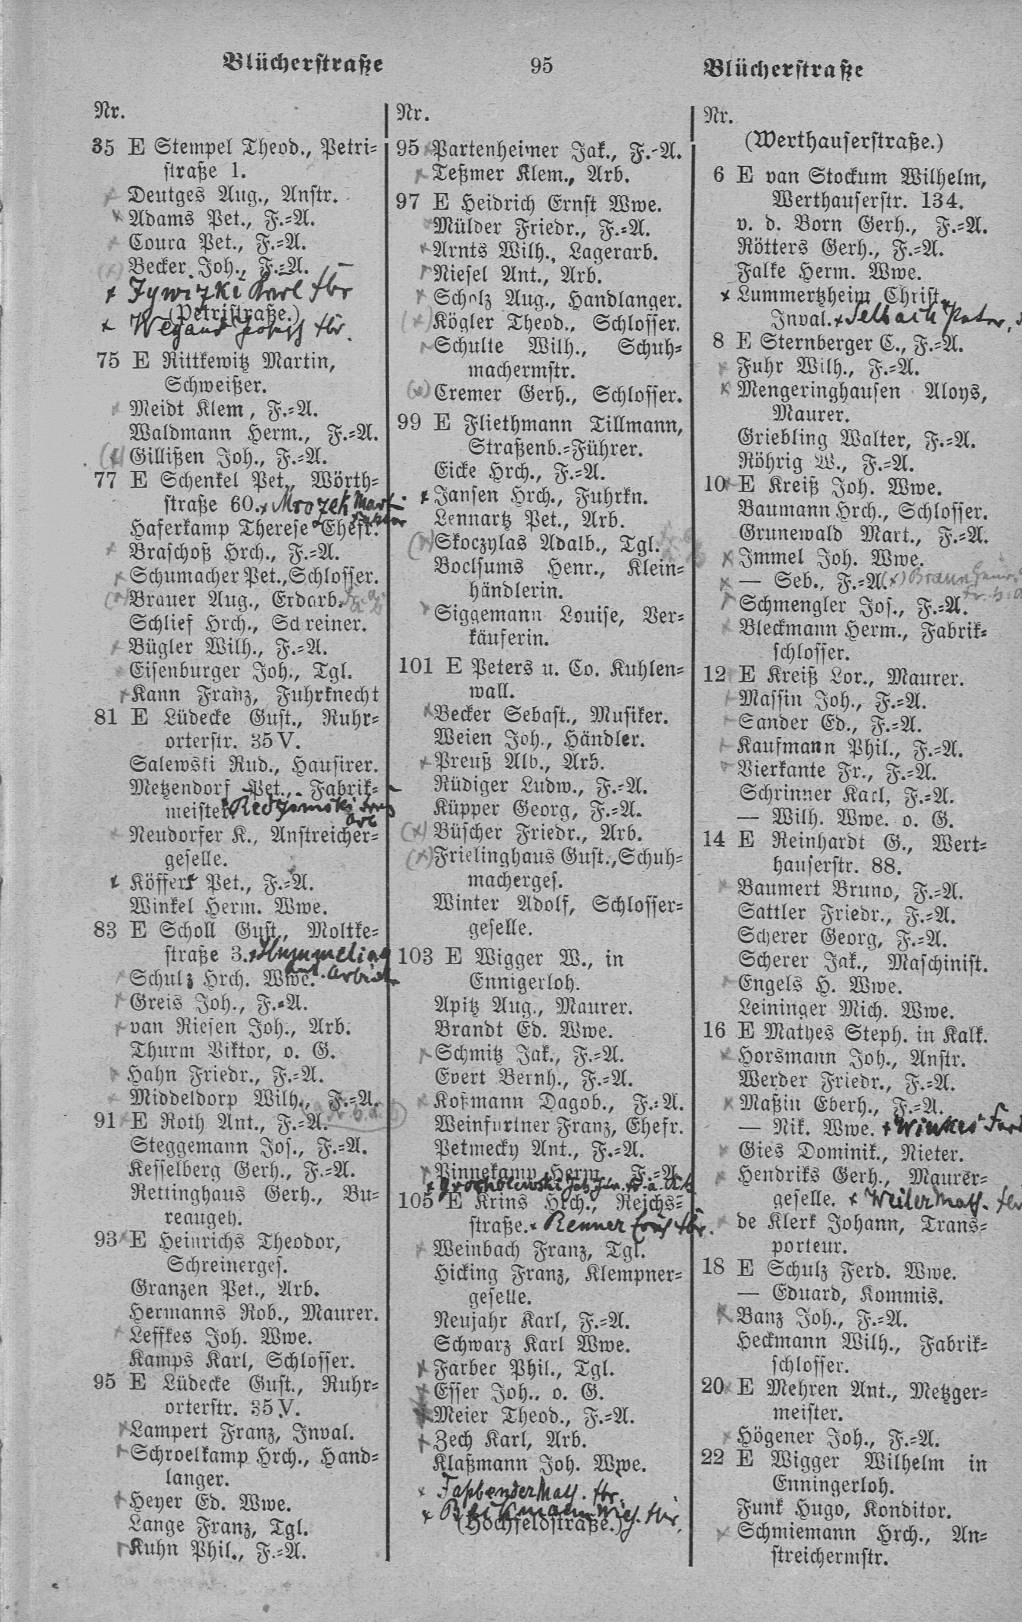 Blücherstraße 95 Blücherstraße
Nr.
35 E Stempel Theod., Petri-
straße 1.
Deutges Aug., Anstr.
Adams Pet., F.-A.
Coura Pet., F.-A.
Becker Joh., F.-A.
Karl
(Petristraße.)
75 E Rittkewitz Martin,
Schweißer.
Meidt Klem, F.-A.
Waldmann Herm., F.-A.
Gillißen Joh., F.-A.
77 E Schenkel Pet., Wörth-
straße 60. Mrozek
Haferkamp Therese Ehefr.
Braschoß Hrch., F.-A.
Schumacher Pet., Schlosser.
Brauer Aug., Erdarb.
Schlief Hrch., Schreiner.
Bügler Wilh., F.-A.
Eisenburger Joh., Tgl.
Kann Franz, Fuhrknecht
81 E Lüdecke Gust., Ruhr-
orterstr. 35 V.
Salewski Rud., Hausirer.
Metzendorf Pet., Fabrik-
meister.
Neudorfer K., Anstreicher-
geselle.
Köffers Pet., F.-A.
Winkel Herm. Wwe.
83 E Scholl Gust., Moltke-
straße 3.
Schulz Hrch. Wwe.
Greis Joh., F.-A.
van Riesen Joh., Arb.
Thurm Viktor, o. G.
Hahn Friedr., F.-A.
Middeldorp Wilh., F.-A.
91 E Roth Ant., F.-A.
Steggemann Jos., F.-A.
Kesselberg Gerh., F.-A.
Rettinghaus Gerh., Bu-
reaugeh.
93 E Heinrichs Theodor,
Schreinerges.
Granzen Pet., Arb.
Hermanns Rob., Maurer.
Leffkes Joh. Wwe.
Kamps Karl, Schlosser.
95 E Lüdecke Gust., Ruhr-
orterstr. 35 V.
Lampert Franz, Inval.
Schroelkamp Hrch., Hand-
langer.
Heyer Ed. Wwe.
Lange Franz, Tgl.
Kuhn Phil., F.-A.
Nr.
95 Partenheimer Jak., F.-A.
Teßmer Klem., Arb.
97 E Heidrich Ernst Wwe.
Mülder Friedr., F.-A.
Arnts Wilh., Lagerarb.
Niesel Ant., Arb.
Scholz Aug., Handlanger.
Kögler Theod., Schlosser.
Schulte Wilh., Schuh-
machermstr.
Cremer Gerh., Schlosser.
99 E Fliethmann Tillmann,
Straßenb.-Führer.
Eicke Hrch., F.-A.
Jansen Hrch., Fuhrkn.
Lennartz Pet., Arb.
Skoczylas Adalb., Tgl.
Boelsums Henr., Klein-
händlerin.
Siggemann Louise, Ver-
käuferin.
101 E Peters u. Co. Kuhlen-
wall.
Becker Sebast., Musiker.
Weien Joh., Händler.
Preuß Alb., Arb.
Rüdiger Ludw., F.-A.
Küpper Georg, F.-A.
Büscher Friedr., Arb.
Frielinghaus Gust., Schuh-
macherges.
Winter Adolf, Schlosser-
geselle.
103 E Wigger W., in
Ennigerloh.
Apitz Aug., Maurer.
Brandt Ed. Wwe.
Schmitz Jak., F.-A.
Evert Bernh., F.-A.
Koßmann Dagob., F.-A.
Weinfurtner Franz, Ehefr.
Petmecky Ant., F.-A.
Pinnekamp Herm., F.-A.
105 E Krins Hrch., Reichs-
straße. Renner
Weinbach Franz, Tgl.
Hicking Franz, Klempner-
geselle.
Neujahr Karl, F.-A.
Schwarz Karl Wwe.
Farber Phil., Tgl.
Esser Joh., o. G.
Meier Theod., F.-A.
Zech Karl, Arb.
Klaßmann Joh. Wwe.
(Hochfeldstraße.)
Nr.
(Werthauserstraße.)
6 E van Stockum Wilhelm,
Werthauserstr. 134.
v. d. Born Gerh., F.-A.
Rötters Gerh., F.-A.
Falke Herm. Wwe.
Lummertzheim Christ.,
Inval. Selbach Peter,
8 E Sternberger C., F.-A.
Fuhr Wilh., F.-A.
Mengeringhausen Aloys,
Maurer.
Griebling Walter, F.-A.
Röhrig W., F.-A.
10 E Kreiß Joh. Wwe.
Baumann Hrch., Schlosser.
Grunewald Mart., F.-A.
Immel Joh. Wwe.
— Seb., F.-A. Braun
Schmengler Jos., F.-A.
Bleckmann Herm., Fabrik-
schlosser.
12 E Kreiß Lor., Maurer.
Massin Joh., F.-A.
Sander Ed., F.-A.
Kaufmann Phil., F.-A.
Vierkante Fr., F.-A.
Schrinner Karl, F.-A.
— Wilh. Wwe. o. G.
14 E Reinhardt G., Wert-
hauserstr. 88.
Baumert Bruno, F.-A.
Sattler Friedr., F.-A.
Scherer Georg, F.-A.
Scherer Jak., Maschinist.
Engels H. Wwe.
Leininger Mich. Wwe.
16 E Mathes Steph. in Kalk.
Horsmann Joh., Anstr.
Werder Friedr., F.-A.
Maßin Eberh., F.-A.
— Nik. Wwe.
Gies Dominik., Nieter.
Hendriks Gerh., Maurer-
geselle. Weiler Math.
de Klerk Johann, Trans-
porteur.
18 E Schulz Ferd. Wwe.
— Eduard, Kommis.
Banz Joh., F.-A.
Heckmann Wilh., Fabrik-
schlosser.
20 E Mehren Ant., Metzger-
meister.
Högener Joh., F.-A.
22 E Wigger Wilhelm in
Enningerloh.
Funk Hugo, Konditor.
Schmiemann Hrch., An-
streichermstr.